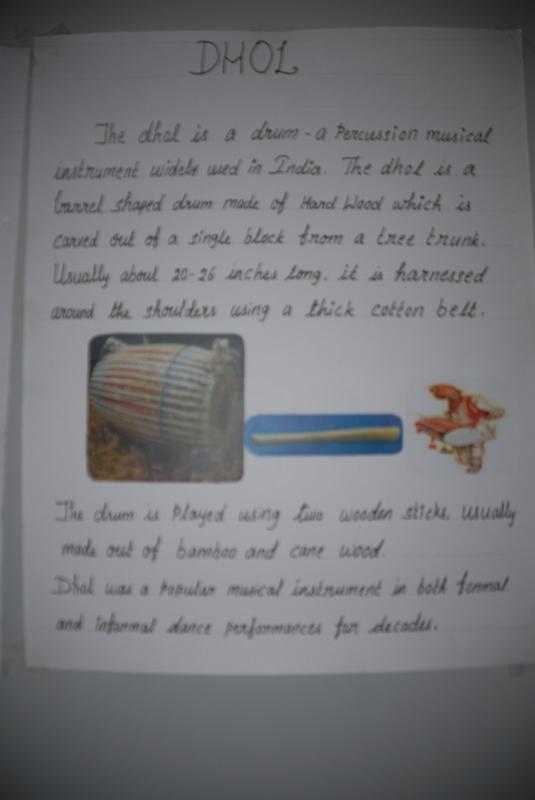 DHOL
The dhol is a drum - a Percussion musical
instrument widely used in India. The dhol is a
barrel shaped drum made of Hard Wood which is
carved out of a single block from a tree trunk.
Usually about 20-26 inches long. it is harnessed
around the shoulders using a thick cotton belt.
The drum is Played using two wooden sticks, usually
made out of bamboo and cane wood.
Dhol was a Popular musical instrument in both formal
and informal dance performances for decades.